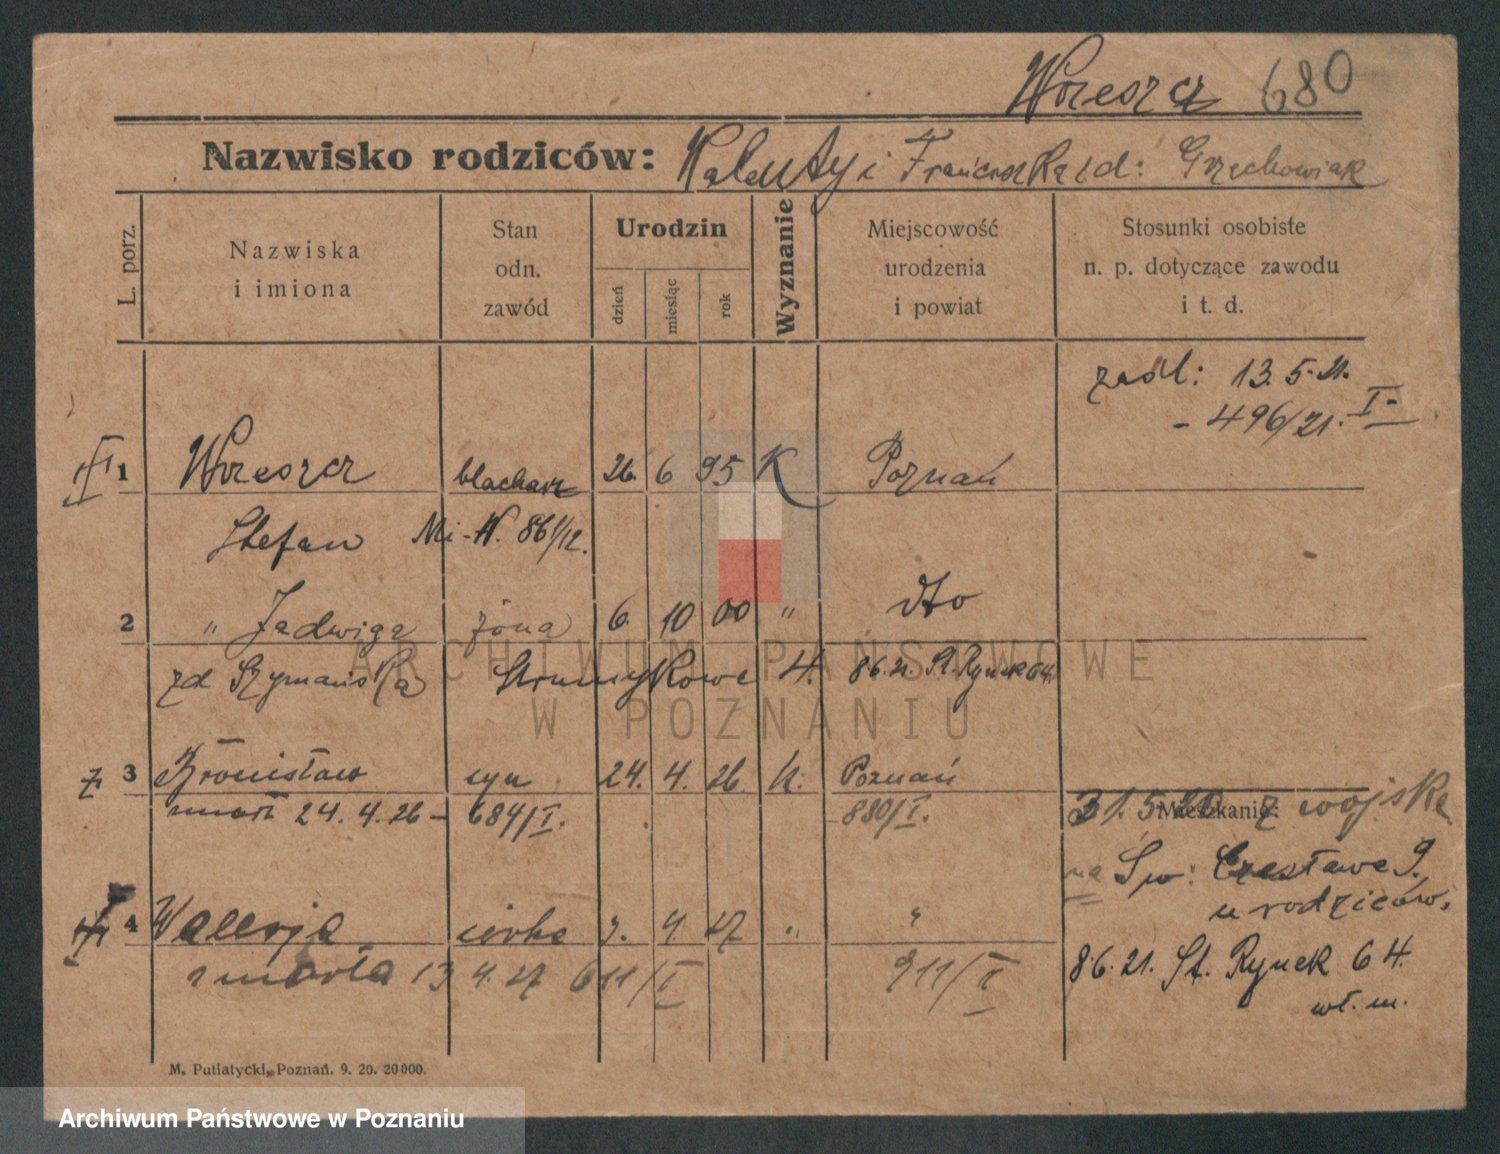 Wreszcz 680
Nazwisko rodziców: Walenty i Franciszka zd: Grzechowiak
L. porz.
Nazwiska i imiona
Stan odn. zawód
Urodzin
dzień
miesiąc
rok
Wyznanie
Miejscowość urodzenia i powiat
Stosunki osobiste n. p. dotyczące zawodu i t. d.
zaśl: 13.5.21.
- 496/21. I-
1 Wreszcz blacharz 26. 6 95 K Poznań
Stefan 861/12.
2 " Jadwiga żona 6. 10 00 " dto
zd Szymańska Strumykowa 4. 8.6.21. St. Rynek 64.
3 Bronisław syn 24. 4. 26 k. Poznań
zmarł 24.4.26 - 684/I. 880/I.
Mieszkanie:
31.5.20 z wojska
na Św: Czesława 9.
u rodziców.
4 Walerja córka 2. 4. 27 " "
zmarła 13 4. 27 611/I 911/I
8.6.21. St. Rynek 64.
wł. m.
M. Putiatycki, Poznań. 9. 20. 20000.
ARCHIWUM PAŃSTWOWE
W POZNANIU
Archiwum Państwowe w Poznaniu